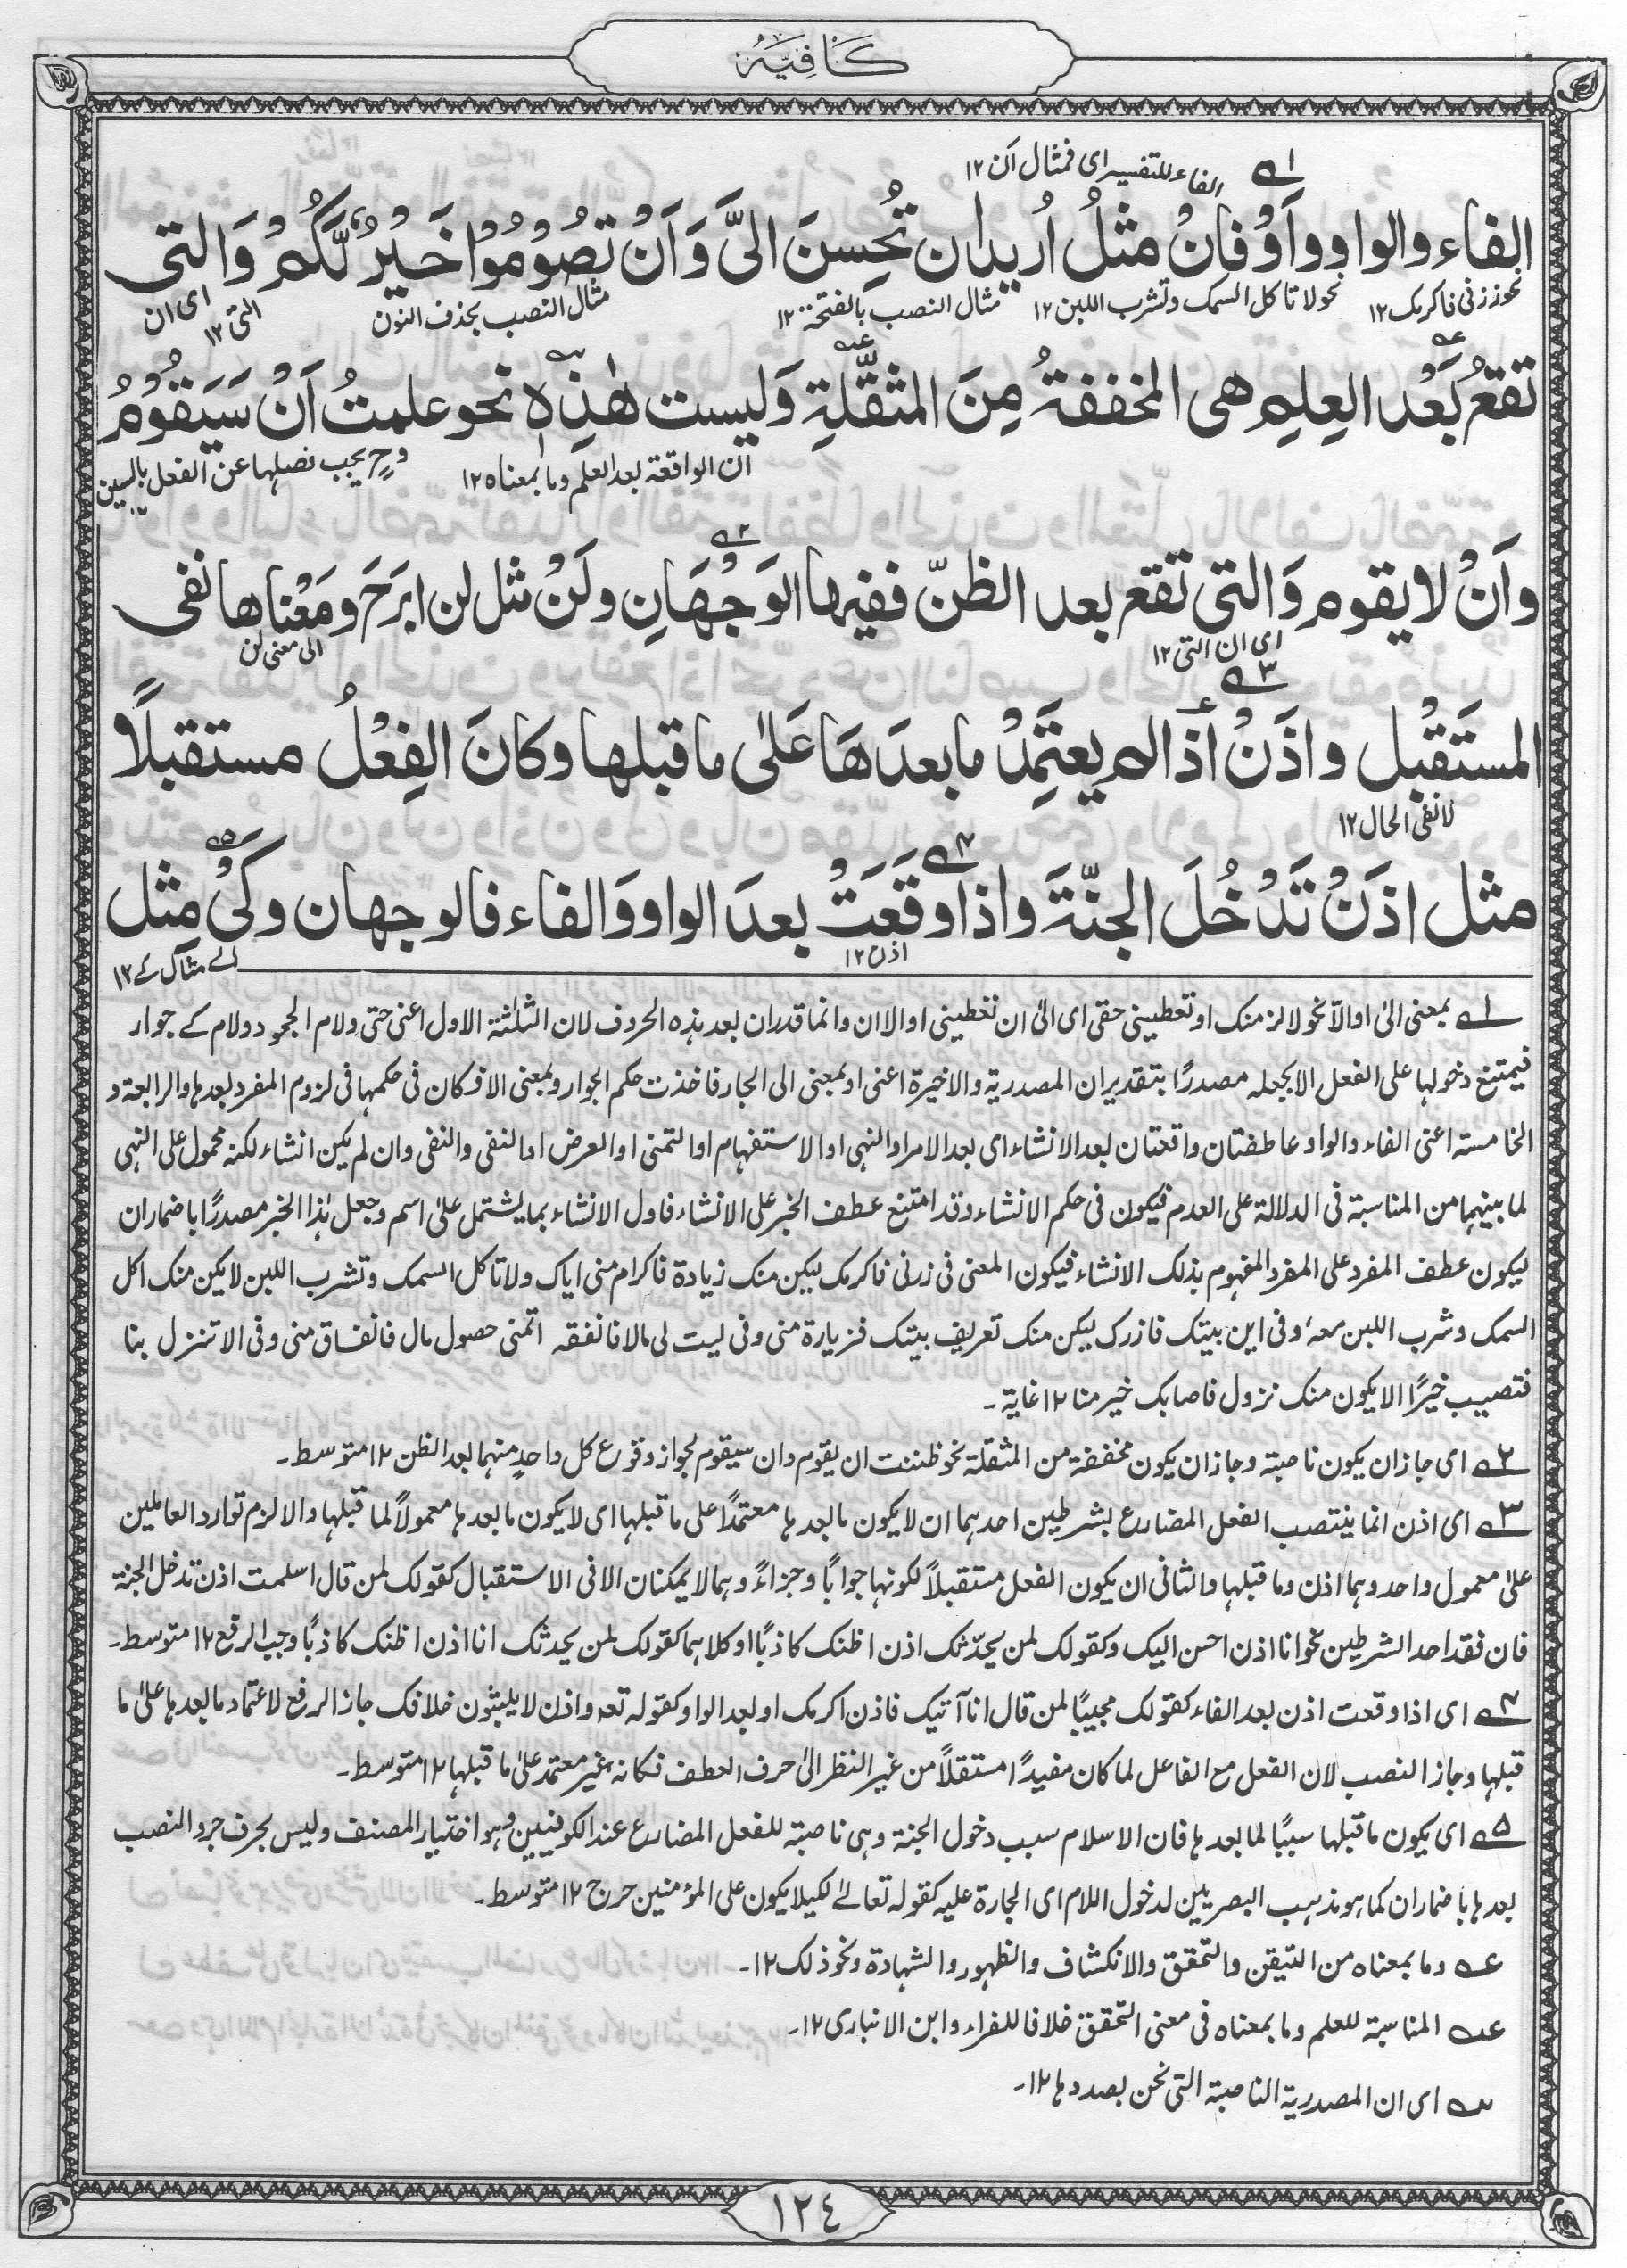 كَافِيَه
١ الفاء للتفسير ای فمثال اَن ١٢
الفاء والواو واَوْ فاَنْ مثلُ اُريدان تُحسِنَ الیَّ وَاَنْ تصُوْمُوْا خَيْرٌ لَّكُمْ وَالتی
نحو زرنی فاکرمک ١٢ نحو لا تاکل السمک وتشرب اللبن ١٢ مثال النصب بالفتحة ١٢ مثال النصب بحذف النون التی ١٢ ای ان
تقعُ بَعْد العِلمِ هی المخففةُ مِنَ المثقَّلةِ وَليست هٰذِهٖ نحو علمتُ اَنْ سَيَقُوْمُ
ان الواقعة بعد العلم وما بمعناه ١٢ وح يجب فصلها عن الفعل بالسين
واَنْ لا يقوم وَالتی تقع بعد الظنّ ففيها الوَجْهَانِ ولَنْ مثل لن ابرَحَ ومَعْناها نفی
ای ان التی ١٢ ای معنی لن
المستَقْبل واذَنْ اذا لم يعتَمِدْ ما بعدَهَا عَلیٰ ما قبلها وكانَ الفِعْلُ مستقبلًا
لا نفی الحال ١٢
مثل اذَنْ تَدْخُلَ الجنّةَ واذا وقَعَتْ بعدَ الواو وَالفاء فالوجهان وكَیْ مثل
اذن ١٢ ای مثال کے ١٢
١ بمعنی الیٰ او الّا نحو لالزمنک او تعطينی حقی ای الیٰ ان تعطينی او الا ان وانما قدر ان بعد ہذہ الحروف لان الثلٰثة الاول اعنی حتی ولام الجحود ولام کے جوار
فيمتنع دخولہا علی الفعل الا بجعلہ مصدرًا بتقدير ان المصدرية والاخيرة اعنی او بمعنی الی الجار فاخذت حکم الجوار وبمعنی الا فرکان فی حکمہا فی لزوم المفرد بعدہا والرابعة و
الخامسة اعنی الفاء والواو عاطفتان واقعتان بعد الانشاء ای بعد الامر او النہی او الاستفہام او التمنی او العرض او النفی والنفی وان لم يکن انشاء لکنہ محمول علی النہی
لما بينہما من المناسبة فی الدلالة علی العدم فيکون فی حکم الانشاء وقد امتنع عطف الخبر علی الانشاء فاول الانشاء بما يشتمل علیٰ اسم وجعل ہٰذا الخبر مصدرًا باضمار ان
ليکون عطف المفرد علی المفرد المفہوم بذلک الانشاء فيکون المعنی فی زرنی فاکرمک ليکن منک زيادة فاکرام منی اياک ولا تاکل السمک وتشرب اللبن لا يکن منک اکل
السمک وشرب اللبن معہ، وفی اين بيتک فازرک ليکن منک تعريف بيتک فزيارة منی وفی ليت لی مالا فانفقہ اتمنی حصول مال فانفاق منی وفی الا تنزل بنا
فتصيب خيرًا الا يکون منک نزول فاصابک خير منا ١٢ غاية ـ
٢ ای جاز ان يکون ناصبة وجاز ان يکون مخففة من المثقلة نحو ظننت ان يقوم وان سيقوم لجواز وقوع کل واحدٍ منہما بعد الظن ١٢ متوسط ـ
٣ ای اذن انما ينتصب الفعل المضارع بشرطين احدہما ان لا يکون ما بعدہا معتمدًا علی ما قبلہا ای لا يکون ما بعدہا معمولاً لما قبلہا والا لزم توارد العاملين
علیٰ معمول واحد وہما اذن وما قبلہا والثانی ان يکون الفعل مستقبلاً لکونہا جوابًا وجزاءً وہما لا يمکنان الا فی الاستقبال کقولک لمن قال اسلمت اذن تدخل الجنة
فان فقد احد الشرطين نحو انا اذن احسن اليک وکقولک لمن يحدّثک اذن اظنک کاذبًا او کلاہما کقولک لمن يحدثک انا اذن اظنک کاذبًا وجب الرفع ١٢ متوسط ـ
٤ ای اذا وقعت اذن بعد الفاء کقولک مجيبًا لمن قال انا آتيک فاذن اکرمک او بعد الواو کقولہ تعہ واذن لا يلبثون خلافک جاز الرفع لاعتماد ما بعدہا علیٰ ما
قبلہا وجاز النصب لان الفعل مع الفاعل لما کان مفيدًا مستقلاً من غير النظر الیٰ حرف العطف فکانہ غير معتمد علیٰ ما قبلہا ١٢ متوسط ـ
٥ ای يکون ما قبلہا سببًا لما بعدہا فان الاسلام سبب دخول الجنة وہی ناصبة للفعل المضارع عند الکوفيين وہو اختيار المصنف وليس بحرف جر والنصب
بعدہا باضمار ان کما ہو مذہب البصريين لدخول اللام ای الجارة عليہ کقولہ تعالےٰ لکيلا يکون علی المؤمنين حرج ١٢ متوسط ـ
عہ وما بمعناه من التيقن والتحقق والانکشاف والظہور والشہادة ونحو ذلک ١٢ـ
عہ المناسبة للعلم وما بمعناه فی معنی التحقق خلافا للفراء وابن الانباری ١٢ـ
سہ ای ان المصدرية الناصبة التی نحن بصددہا ١٢ـ
١٢٤